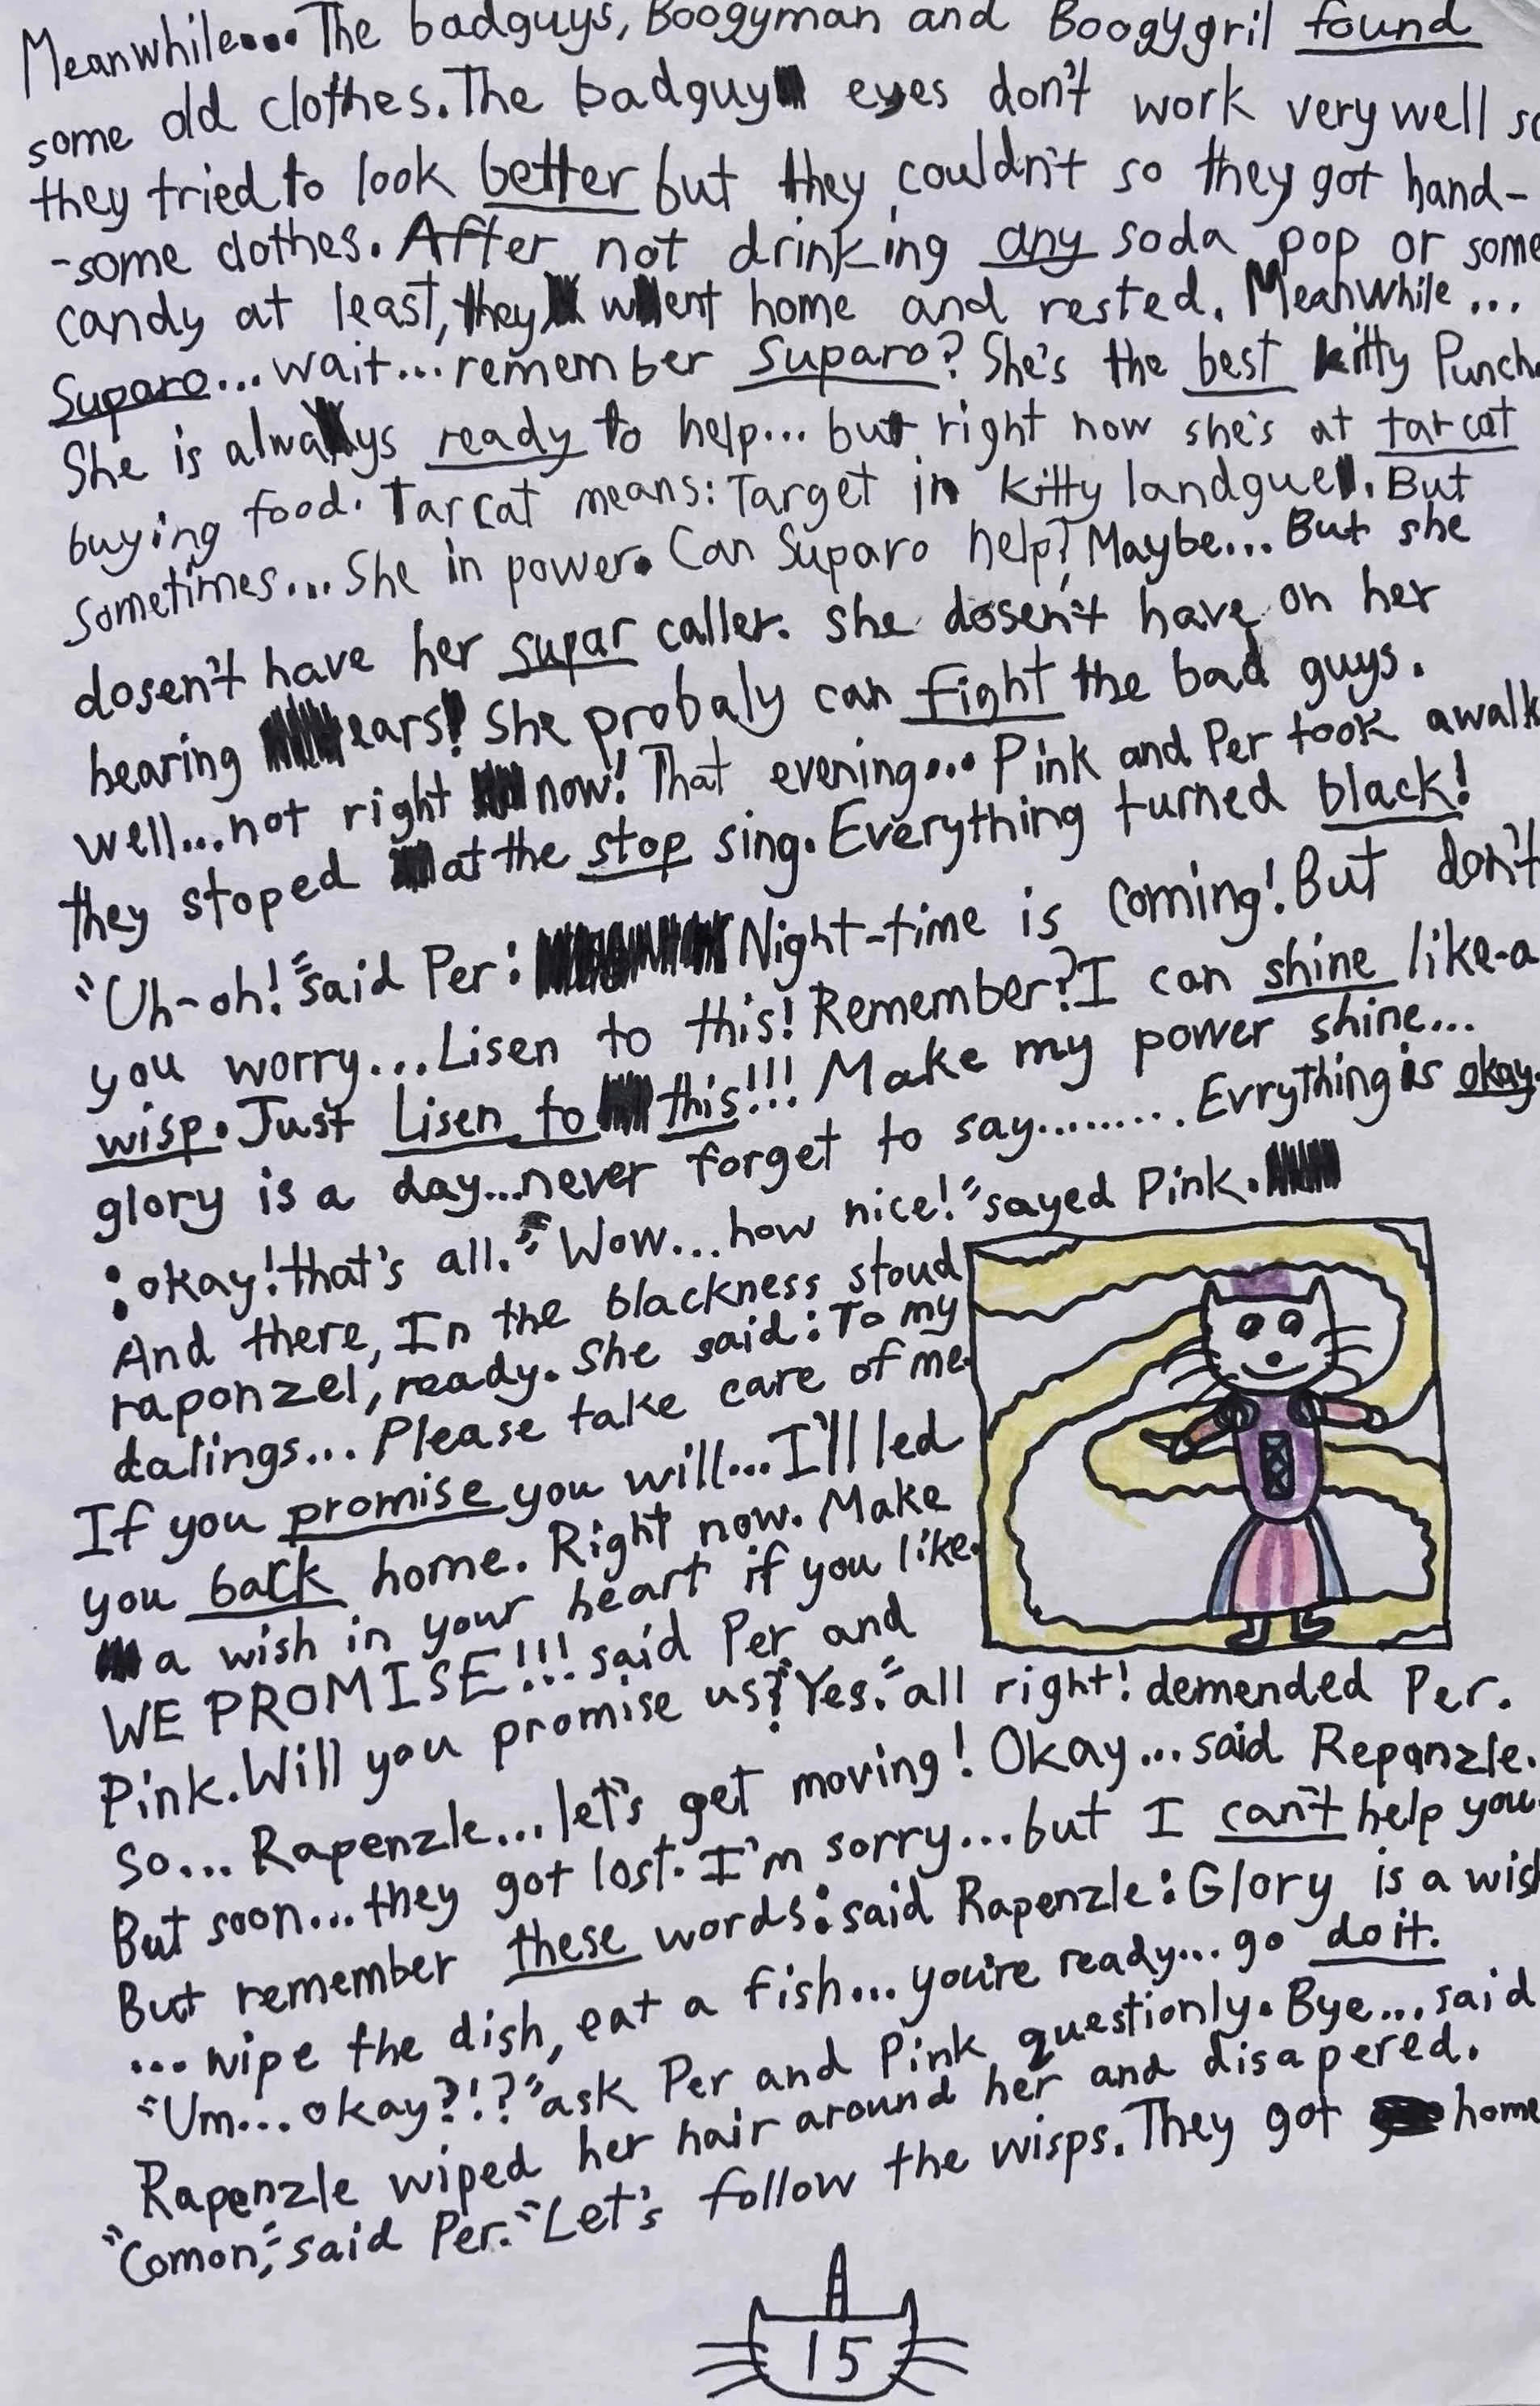 Meanwhile.... The badguys, Boogyman and Boogygril found
some old clothes. The badguy eyes don't work very well so
they tried to look better but they couldn't so they got hand-
-some clothes. After not drinking any soda pop or some
candy at least, they went home and rested. Meanwhile...
Suparo... wait... remember Suparo? She's the best kitty Punch.
She is always ready to help... but right now she's at tarcat
buying food. Tarcat means: Target in kitty landgue. But
sometimes... She in power. Can Suparo help? Maybe... But she
dosen't have her supar caller. she dosen't have on her
hearing ears! She probaly can fight the bad guys.
well... not right now! That evening... Pink and Per took a walk
they stoped at the stop sing. Everything turned black!
"Uh-oh!" said Per: Night-time is coming! But don't
you worry... Lisen to this! Remember? I can shine like-a
wisp. Just Lisen to this!!! Make my power shine...
glory is a day... never forget to say......... Evrything is okay.
: okay! that's all." Wow... how nice!" sayed Pink.
And there, In the blackness stoud
raponzel, ready. She said: To my
dalings... Please take care of me.
If you promise you will... I'll led
you back home. Right now. Make
a wish in your heart if you like.
WE PROMISE!!! said Per and
Pink. Will you promise us? Yes." all right! demended Per.
So... Rapenzle... let's get moving! Okay... said Repanzle.
But soon... they got lost. I'm sorry... but I can't help you.
But remember these words: said Rapenzle: Glory is a wish
... wipe the dish, eat a fish... you're ready... go do it.
"Um... okay?!?" ask Per and Pink questionly. Bye... said
Rapenzle wiped her hair around her and disapered.
"Comon," said Per. "Let's follow the wisps. They got home
15